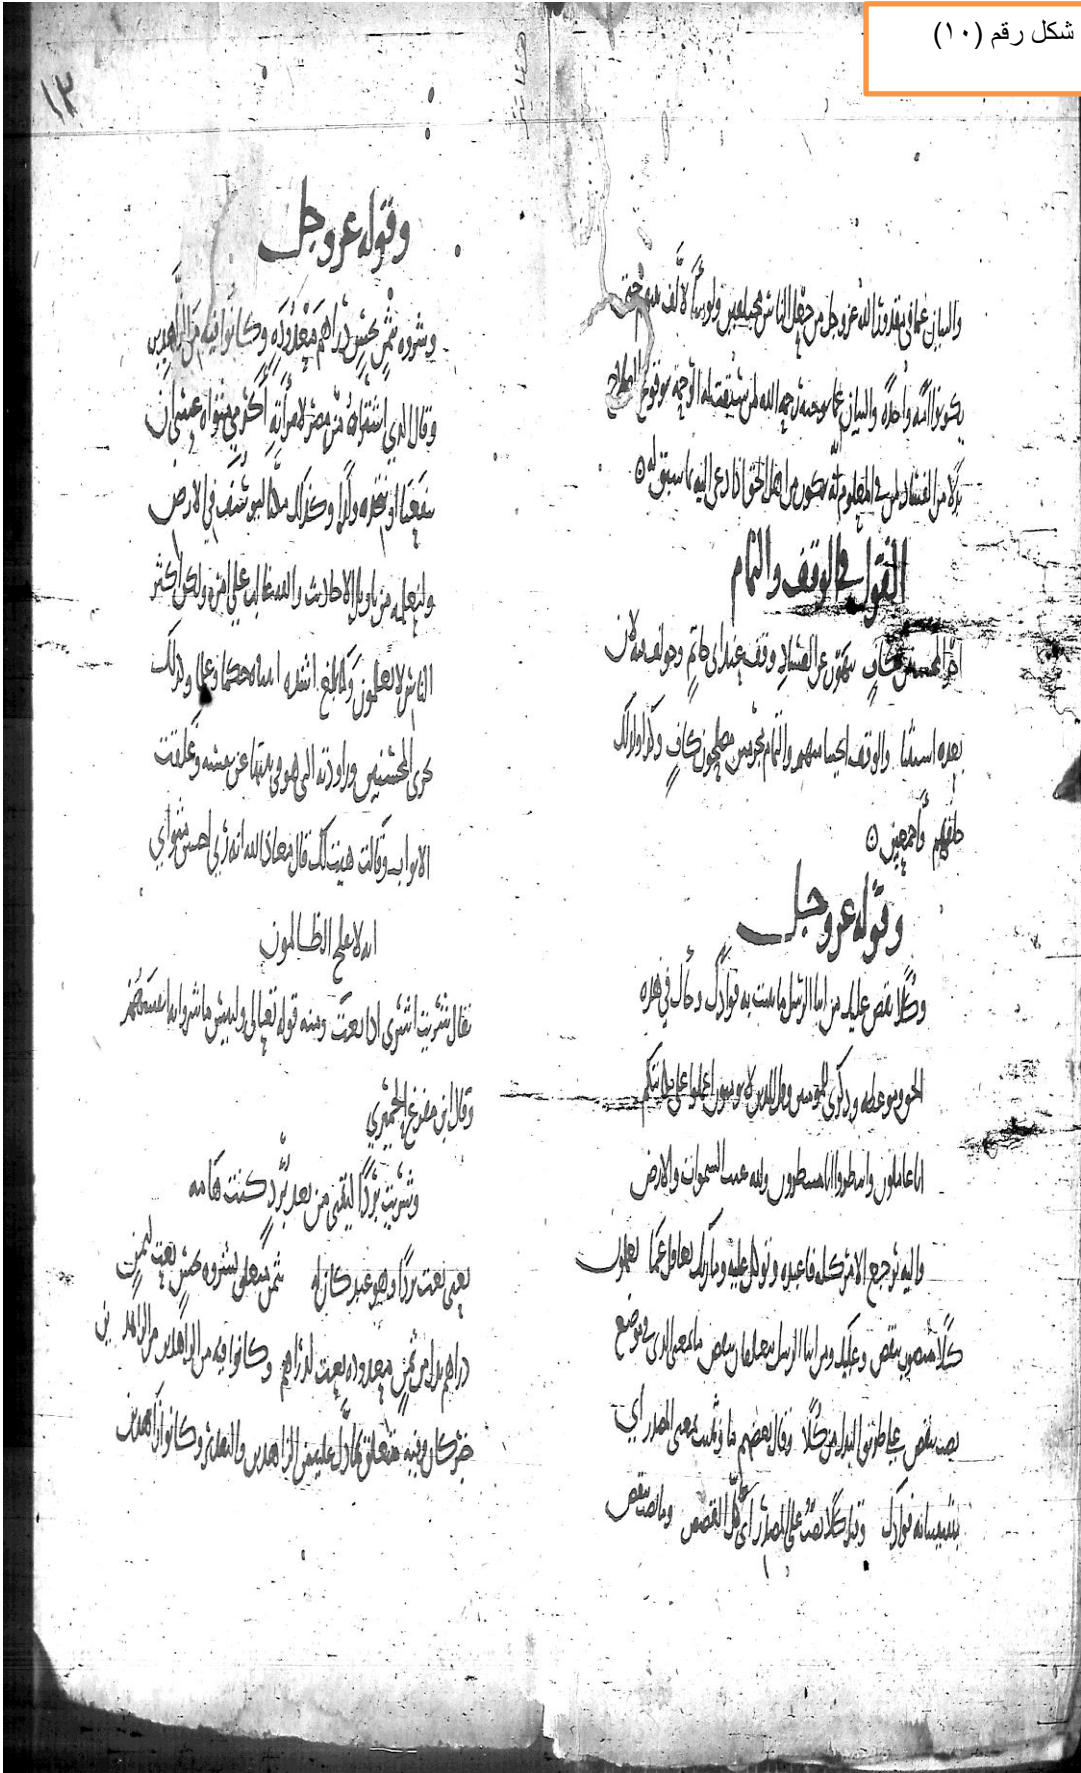 شكل رقم (١٠)
والبيان عما في مقدور الله عز وجل من جعل الناس مختلفين ولو شا لالف بينهم حتى
يكونوا امة واحدة والبيان عما يوجبه رحمه الله لمن سبقت له الرحمة من وقوع الصلاح
بدلا من الفساد لمن في المعلوم انه يكون من اهل الحق اذا دعى اليه بما سبق له ⊙
القول في الوقف والتمام
ينهون عن الفساد وقف عند ابي حاتم وخولف فيه لان
بعده استثنا والوقف انجينا منهم والتمام مجرمين مصلحون كاف وكذا ولذلك
خلقهم واجمعين ⊙
وقوله عز وجل
وكلا نقص عليك من انبا الرسل ما نثبت به فوادك وجاك في هذه
الحق وموعظه وذكرى للمومنين وقل للذين لا يومنون اعملوا على مكانتكم
انا عاملون وانتظروا انا منتظرون ولله غيب السموات والارض
واليه يرجع الامر كله فاعبده وتوكل عليه وما ربك بغافل عما تعملون
كلا منصوب بنقص وعليك ومن انبا الرسل متعلقان بنقص ما بمعنى الذي في موضع
نصب بنقص على طريق البدل من كلا وقال بعضهم ما نثبت بمعنى المصدر اي
بتثبيتنا به فوادك وقيل كلا نصب على المصدر اي كل القصص وما نصب بنقص
١٣
وقوله عز وجل
وشروه بثمن بخس دراهم معدودة وكانوا فيه من الزاهدين
وقال الذي اشتراه من مصر لامرأته أكرمي مثواه عسى ان
ينفعنا او نتخذه ولدا وكذلك مكنا ليوسف في الارض
ولنعلمه من تاويل الاحاديث والله غالب على امره ولكن اكثر
الناس لا يعلمون ولما بلغ اشده اتيناه حكما وعلما وكذلك
نجزى المحسنين وراودته التي هو في بيتها عن نفسه وغلقت
الابواب وقالت هيت لك قال معاذ الله انه ربي احسن مثواي
انه لا يفلح الظالمون
يقال شريت اشرى اذا بعت ومنه قوله تعالى ولبيس ما شروا به انفسهم
وقال ابن مفرغ الحميري
وشريت بردا ليتني من بعد برد كنت هامه
يعني بعت بردا وهو عبد كان له بثمن متعلق بشروه بخس نعت لثمن
دراهم بدل من ثمن معدوده نعت لدراهم وكانوا فيه من الزاهدين من الزاهدين
خبر كان وفيه متعلق بما دل عليه من الزاهدين والتقدير وكانوا زاهدين